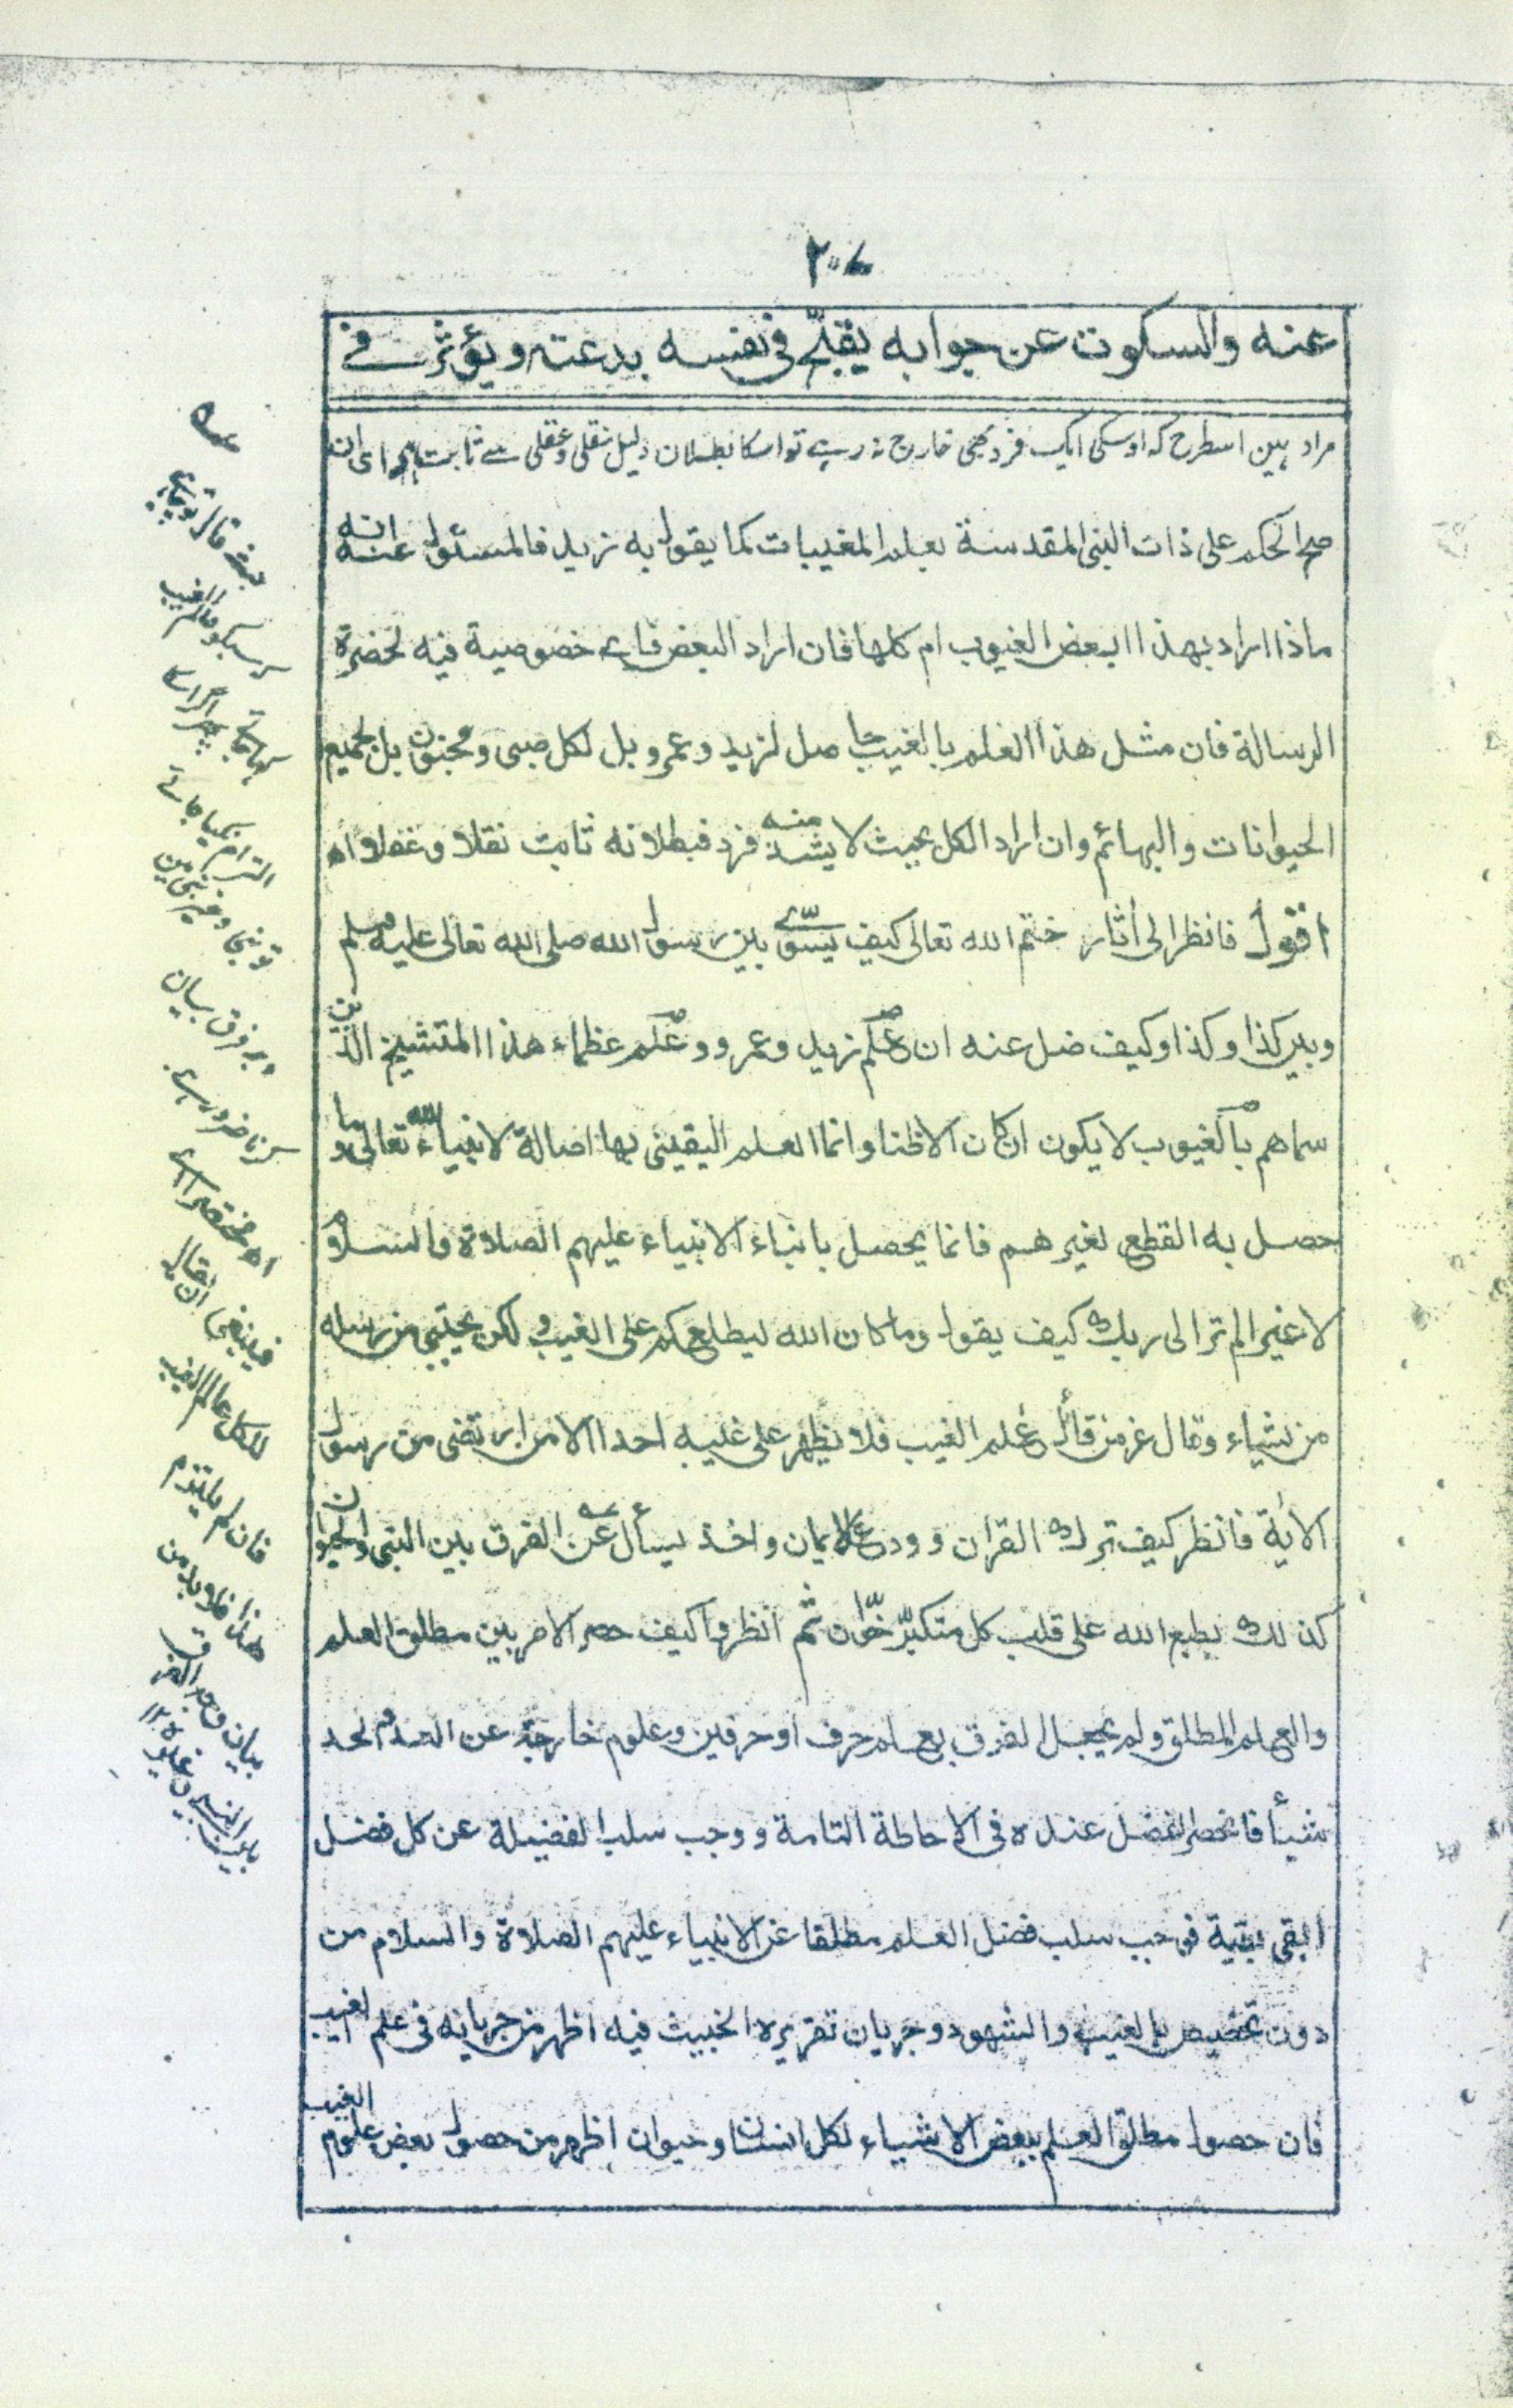 ٢٠٧
عنه والسكوت عن جوابه يقبّح فى نفسه بدعته ويؤثر فى
مراد ہین اسطرح کہ اوسکی ایک فرد بھی خارج نہ رہے تو اسکا بطلان دلیل نقلی وعقلی سے ثابت ہے اى ان
صح الحكم على ذات النبى المقدسة بعلم المغيبات كما يقول به زيد فالمسئول عنه انه
ماذا اراد بهذا ابعض الغيوب ام كلها فان اراد البعض فاى خصوصية فيه لحضرة
الرسالة فان مثل هذا العلم بالغيب حاصل لزيد وعمرو بل لكل صبى ومجنون بل لجميع
الحيوانات والبهائم وان اراد الكل بحيث لا يشذ منه فرد فبطلانه ثابت نقلا وعقلا اه
اقول فانظر الى أثار ختم الله تعالى كيف يسّوى بين رسول الله صلى الله تعالى عليه وسلم
وبين كذا وكذا وكيف ضل عنه ان علم زيد وعمرو وعلم عظماء هذا المتشيخ الذين
سماهم بالغيوب لا يكون ان كان الا ظنا وانما العلم اليقينى بها اصالة لانبياء الله تعالى وما
حصل به القطع لغيرهم فانما يحصل بانباء الانبياء عليهم الصلاة والسلام
لا غير الم تر الى ربك كيف يقول وما كان الله ليطلعكم على الغيب ولكن يجتبى من رسله
من يشاء وقال عز من قائل علم الغيب فلا يظهر على غيبه احدا الا من ارتضى من رسول
الأية فانظر كيف ترك القران وودع الايمان واخذ يسأل عن الفرق بين النبى والحيوان
كذلك يطبع الله على قلب كل متكبّر خوّان ثم انظروا كيف حصر الامر بين مطلق العلم
والعلم المطلق ولم يجعل الفرق بعلم حرف او حرفين وعلوم خارجة عن العد والحد
شيأ فانحصر الفضل عنده فى الاحاطة التامة ووجب سلب الفضيلة عن كل فضل
ابقى بقية فوجب سلب فضل العلم مطلقا عن الانبياء عليهم الصلاة والسلام من
دون تخصيص بالغيب والشهود وجريان تقريره الخبيث فيه اظهر من جريانه فى علم الغيب
فان حصول مطلق العلم ببعض الاشياء لكل انسان وحيوان اظهر من حصول بعض علوم الغيب
کہ سبکو عالم الغيب
التزام نکیا جائے
تو نبی وغیر نبی مین
وجہ فرق بیان
کرنا ضرور ہے
فينبغى ان يقال
للكل عالم الغيب
فان لم يلتزم
هذا فلا بد من
بيان وجه الفرق
بين النبى وغيره ١٢